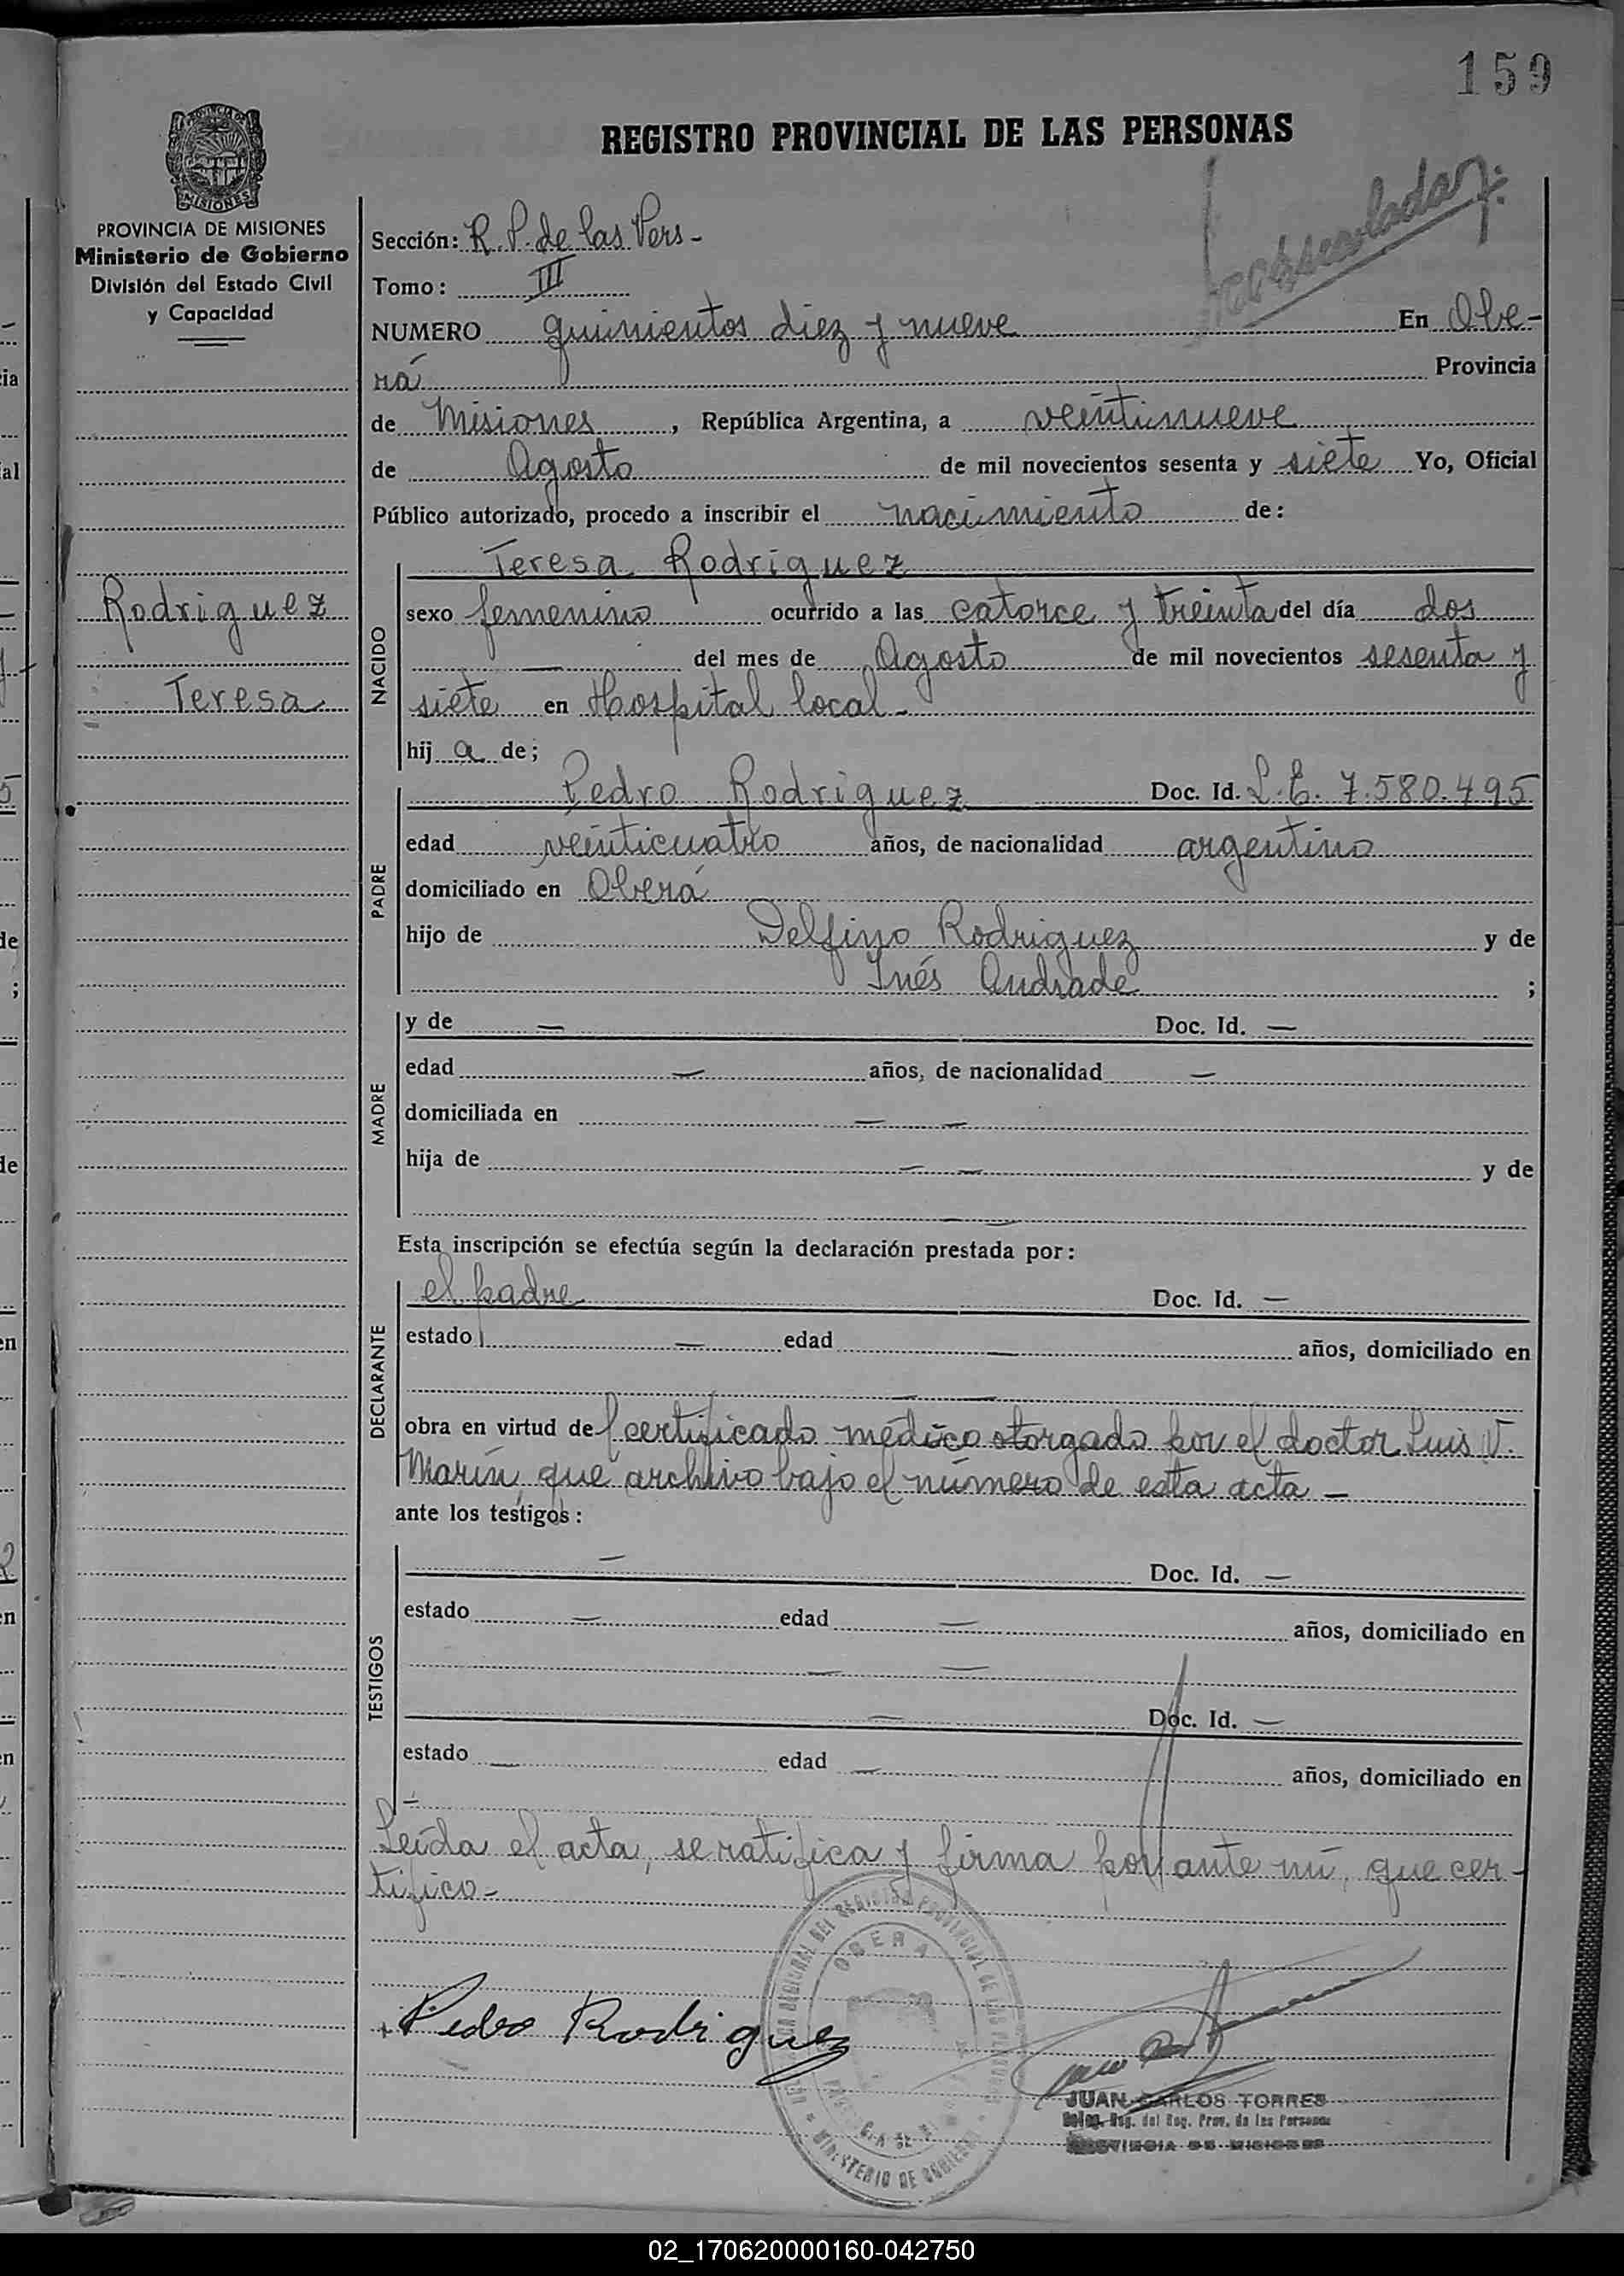 159
REGISTRO PROVINCIAL DE LAS PERSONAS
MISIONES
PROVINCIA DE MISIONES
Ministerio de Gobierno
División del Estado Civil
y Capacidad
Rodriguez
Teresa
Sección: R. P. de las Pers-
Tomo: III
NUMERO quinientos diez y nueve En Obe-
rá Provincia
de Misiones, República Argentina, a veintinueve
de Agosto de mil novecientos sesenta y siete Yo, Oficial
Público autorizado, procedo a inscribir el nacimiento de:
NACIDO
Teresa Rodriguez
sexo femenino ocurrido a las catorce y treinta del día dos
— del mes de Agosto de mil novecientos sesenta y
siete en Hospital local-
hij a de;
PADRE
Pedro Rodriguez Doc. Id. L.E. 7.580.495
edad veinticuatro años, de nacionalidad argentino
domiciliado en Oberá
hijo de Delfino Rodriguez y de
Inés Andrade ;
MADRE
y de — Doc. Id. —
edad — años, de nacionalidad —
domiciliada en — —
hija de — — y de
— —
Esta inscripción se efectúa según la declaración prestada por:
DECLARANTE
el padre Doc. Id. —
estado — edad — años, domiciliado en
— —
obra en virtud del certificado médico otorgado por el doctor Luis V.
Marín, que archivo bajo el número de esta acta —
ante los testigos:
TESTIGOS
— Doc. Id. —
estado — edad — años, domiciliado en
— —
— Doc. Id. —
estado — edad — años, domiciliado en
—
Leída el acta, se ratifica y firma por ante mí, que cer-
tifico-
OBERA
MINISTERIO DE GOBIERNO
Pedro Rodriguez
JUAN CARLOS TORRES
Deleg. Reg. del Reg. Prov. de las Personas
PROVINCIA DE MISIONES
02_170620000160-042750